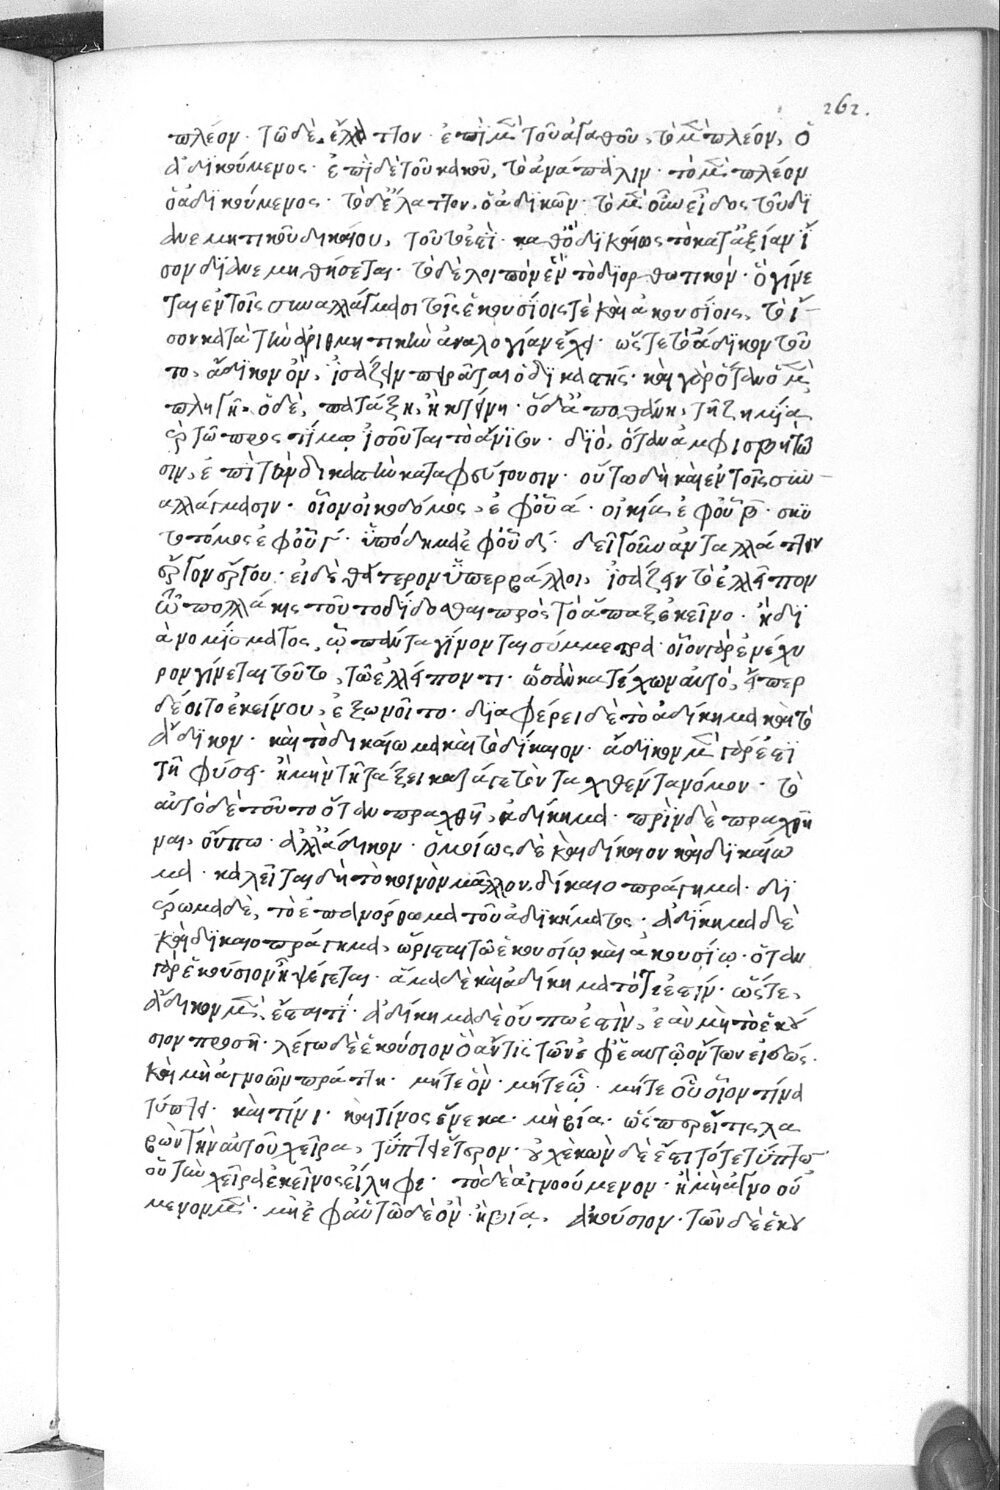 262.
πλέον· τῶ δὲ ἔλαττον· ἐπὶ μὲν τοῦ ἀγαθοῦ, τὸ μὲν πλέον, ὁ
ἀδικούμενος· ἐπὶ δὲ τοῦ κακοῦ, τὸ ἀνάπαλιν· τὸ μὲν πλέον
ὁ ἀδικούμενος· τὸ δὲ ἔλαττον, ὁ ἀδικῶν· τὸ μὲν οὖν εἶδος τοῦ δι
ανεμητικοῦ δικαίου, τοῦτ' ἐστὶ· καθ' ὃ δικαίως τὸ κατ' ἀξίαν ἴ
σον διανεμηθήσεται· τὸ δὲ λοιπὸν ἓν τὸ διορθωτικόν· ὃ γίνε
ται ἐν τοῖς συναλλάγμασι τοῖς ἑκουσίοις τὲ καὶ ἀκουσίοις, τὸ ἴ
σον κατὰ τὴν ἀριθμητικὴν ἀναλογίαν ἔχει· ὥστε τὸ ἄδικον τοῦ
το, ἄδικον ὂν, ἰσάζειν πειρᾶται ὁ δικαστής· καὶ γὰρ ὅταν ὁ μὲν
πληγῆ· ὁ δὲ, πατάξη, ἢ κτείνη· ὁ δ' ἀποθάνη, τῆ ζημία
ἐν τῶ προστίμω ἰσοῦται τὸ ἄνισον· διὸ, ὅταν ἀμφισβητῶ
σιν, ἐπὶ τὸν δικαστὴν καταφεύγουσιν· οὕτω δὴ καὶ ἐν τοῖς συν
αλλάγμασιν· οἷον οἰκοδόμος, ἐφ' οὗ α· οἰκία, ἐφ' οὗ β· σκυ
τοτόμος ἐφ' οὗ γ· ὑπόδημα ἐφ' οὗ δ· δεῖ τοῦν ἀνταλλάττειν
ἔργον ἔργου· εἰ δὲ θάτερον ὑπερβάλλοι, ἰσάζειν τὸ ἐλλεῖπον
ἢ πολλάκις τοῦτο δίδοσθαι πρὸς τὸ ἅπαξ ἐκεῖνο· ἢ δι
ὰ νομίσματος, ᾧ πάντα γίνονται σύμμετρα· οἷον γὰρ ἐνέχυ
ρον γίνεται τοῦτο, τῶ ἐλλείποντι· ὡς ἂν κατέχων αὐτὸ, εἴπερ
δέοιτο ἐκείνου, ἔξω νοῖτο· διαφέρει δὲ τὸ ἀδίκημα καὶ τὸ
ἄδικον· καὶ τὸ δικαίωμα καὶ τὸ δίκαιον· ἄδικον μὲν γάρ ἐστι
τῆ φύσει· ἢ μὴν τῆ τάξει κατά γε τὸν ταχθέντα νόμον· τὸ
αὐτὸ δὲ τοῦτο ὅταν πραχθῆ, ἀδίκημα· πρὶν δὲ πραχθῆ
ναι, οὔπω· ἀλλ' ἄδικον· ὁμοίως δὲ καὶ δίκαιον καὶ δικαίω
μα· καλεῖται δὴ τὸ κοινὸν μᾶλλον, δικαιοπράγημα· δι
καίωμα δὲ, τὸ ἐπανόρθωμα τοῦ ἀδικήματος· ἀδίκημα δὲ
καὶ δικαιοπράγημα, ὥρισται τῶ ἑκουσίω καὶ ἀκουσίω· ὅταν
γὰρ ἑκούσιον ἦ ψέγεται· ἅμα δὲ καὶ ἀδίκημα τότε ἐστίν· ὥστε,
ἄδικον μὲν, ἔσται τι· ἀδίκημα δὲ οὔπω ἐστὶν, ἐὰν μὴ τὸ ἑκού
σιον προσῆ· λέγω δὲ ἑκούσιον ὃ ἄν τις τῶν ἐφ' ἑαυτῶ ὄντων εἰδώς·
καὶ μὴ ἀγνοῶν πράττη· μήτε ὃν· μήτε ᾧ· μήτε οὗ οἷον τίνα
τύπτει· καὶ τίνι· καὶ τίνος ἕνεκα· μὴ βία· ὥσπερ εἴ τις λα
βὼν τὴν αὐτοῦ χεῖρα, τύπτει ἕτερον· οὐχ ἑκὼν δὲ ἔστι τότε τύπτων
οὗ τὴν χεῖρα ἐκεῖνος εἴληφε· τὸ δὲ ἀγνοούμενον· ἢ μὴ ἀγνοού
μενον μὲν· μὴ ἐφ' αὑτῶ δὲ ὂν· ἢ βία, ἀκούσιον· τῶν δὲ ἑκου